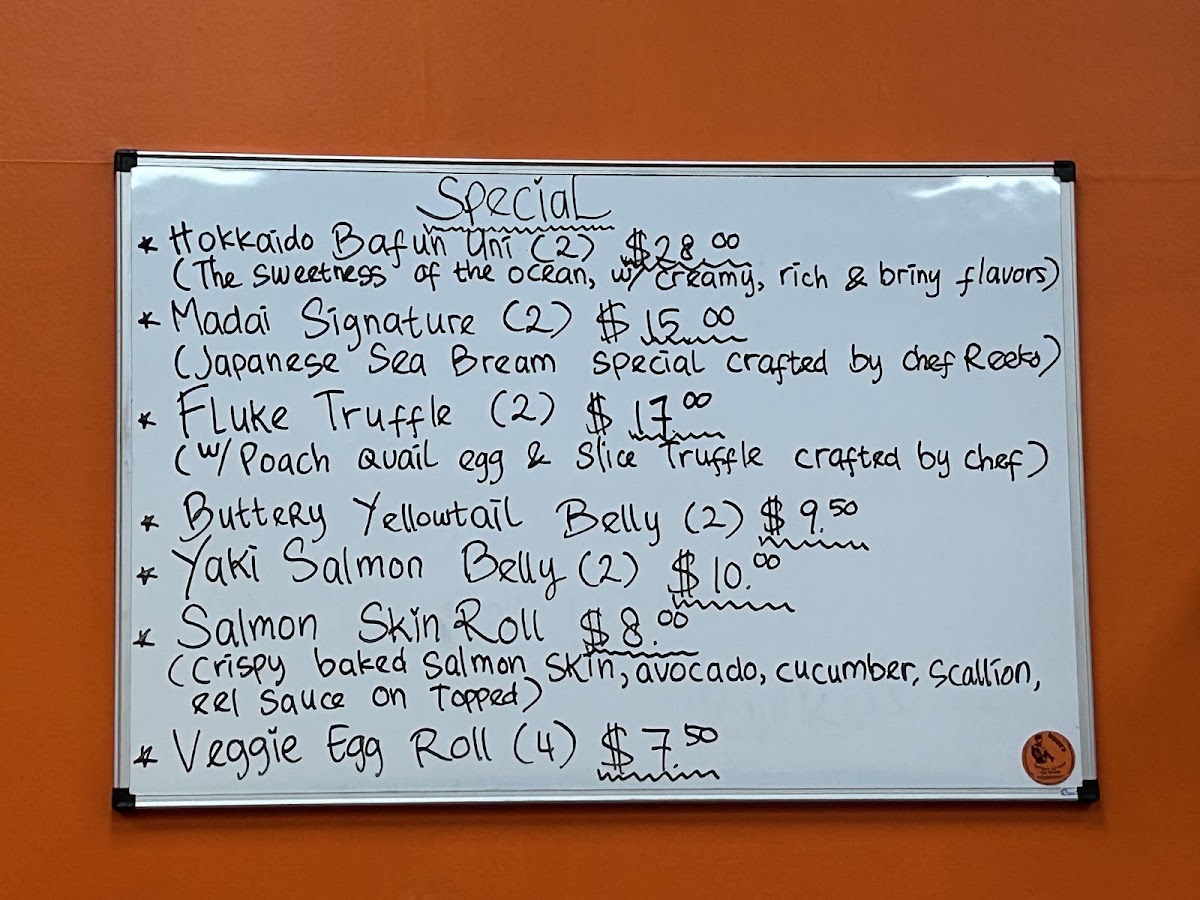 Special
* Hokkaido Bafun Uni (2) $28.00
(The sweetness of the ocean, w/ creamy, rich & briny flavors)
* Madai Signature (2) $15.00
(Japanese Sea Bream special crafted by chef Reeko)
* Fluke Truffle (2) $17.00
(w/ Poach Quail egg & Slice Truffle crafted by chef)
* Buttery Yellowtail Belly (2) $9.50
* Yaki Salmon Belly (2) $10.00
* Salmon Skin Roll $8.00
(Crispy baked Salmon Skin, avocado, cucumber, Scallion,
eel Sauce on Topped)
* Veggie Egg Roll (4) $7.50